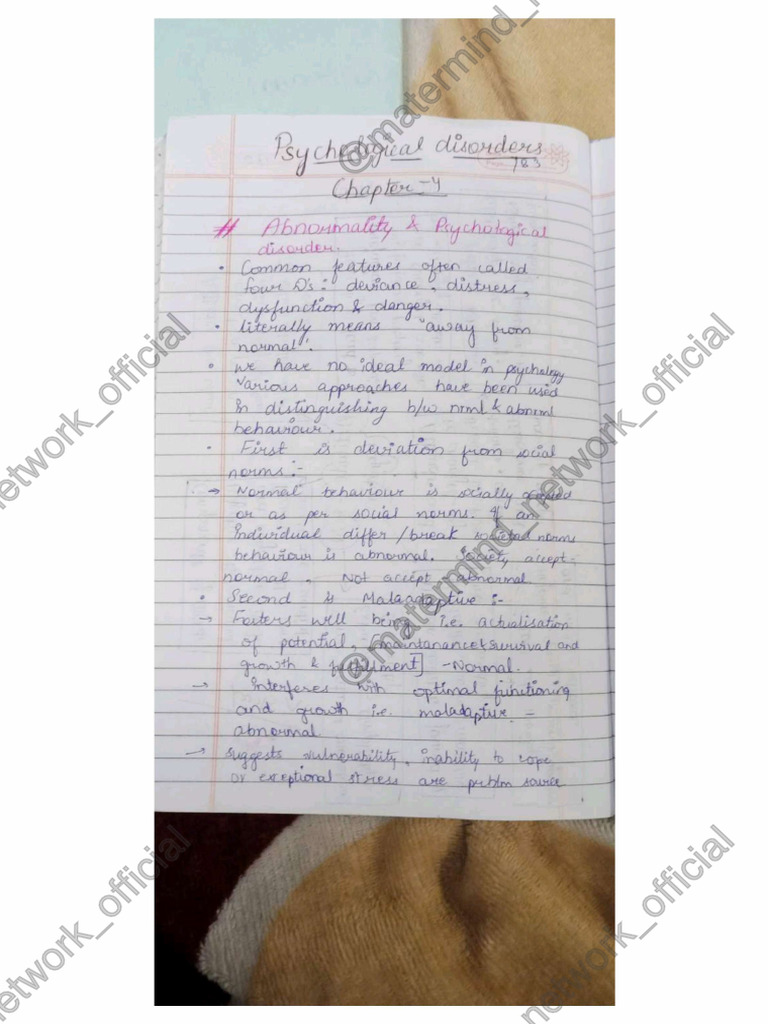 Psychological disorders
783
Chapter-4
# Abnormality & Psychological
disorder.
• Common features often called
four D's: deviance, distress,
dysfunction & danger.
• literally means "away from
normal".
• we have no ideal model in psychology
various approaches have been used
in distinguishing b/w nrml & abnrml
behaviour.
• First is deviation from social
norms:-
→ Normal behaviour is socially
or as per social norms. If an
individual differ/break norms
behaviour is abnormal. Society accept-
normal, Not accept abnormal
• Second is Malaadaptive :-
→ Fosters well being i.e. actualisation
of potential, [maintanance & survival and
growth & fulfillment] -Normal.
→ Interferes with optimal functioning
and growth i.e. maladaptive -
abnormal.
→ suggests vulnerability, inability to cope
or exceptional stress are prblm source
@matermind_network_official
@matermind_network_official
network_official
network_official
network_official
network_official